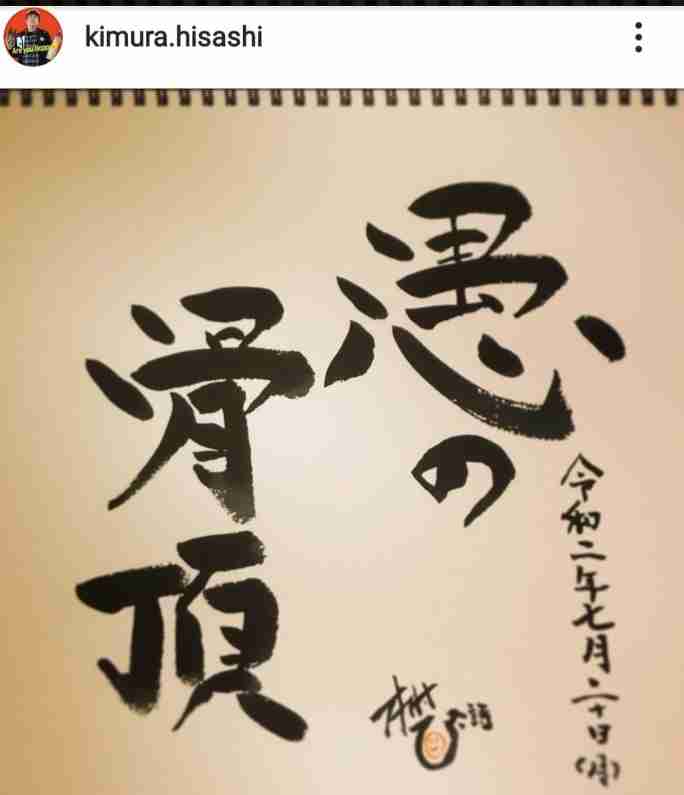 kimura.hisashi
愚の
骨頂
令和二年七月二十日(月)